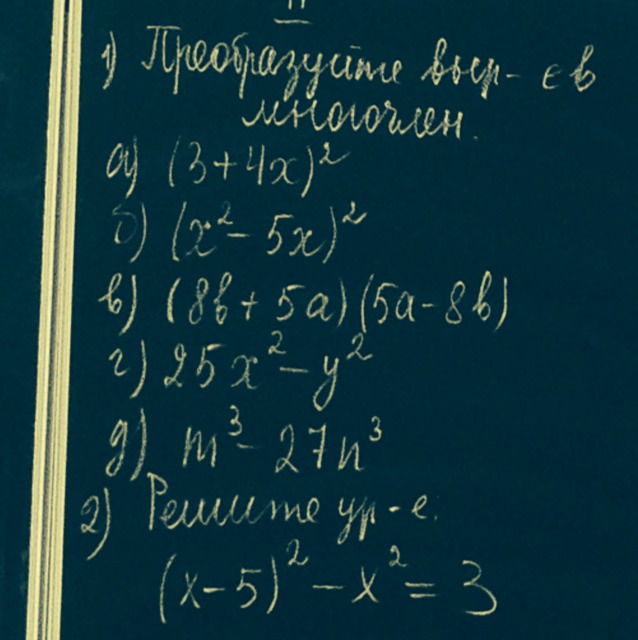 1) Преобразуйте выр-е в
многочлен.
а) (3+4x)²
б) (x²-5x)²
в) (8b+5a)(5a-8b)
г) 25x²-y²
д) m³-27n³
2) Решите ур-е:
(x-5)²-x²=3